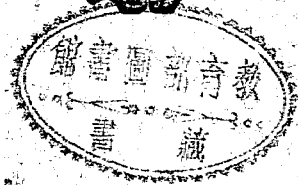 教育部圖書館
藏書